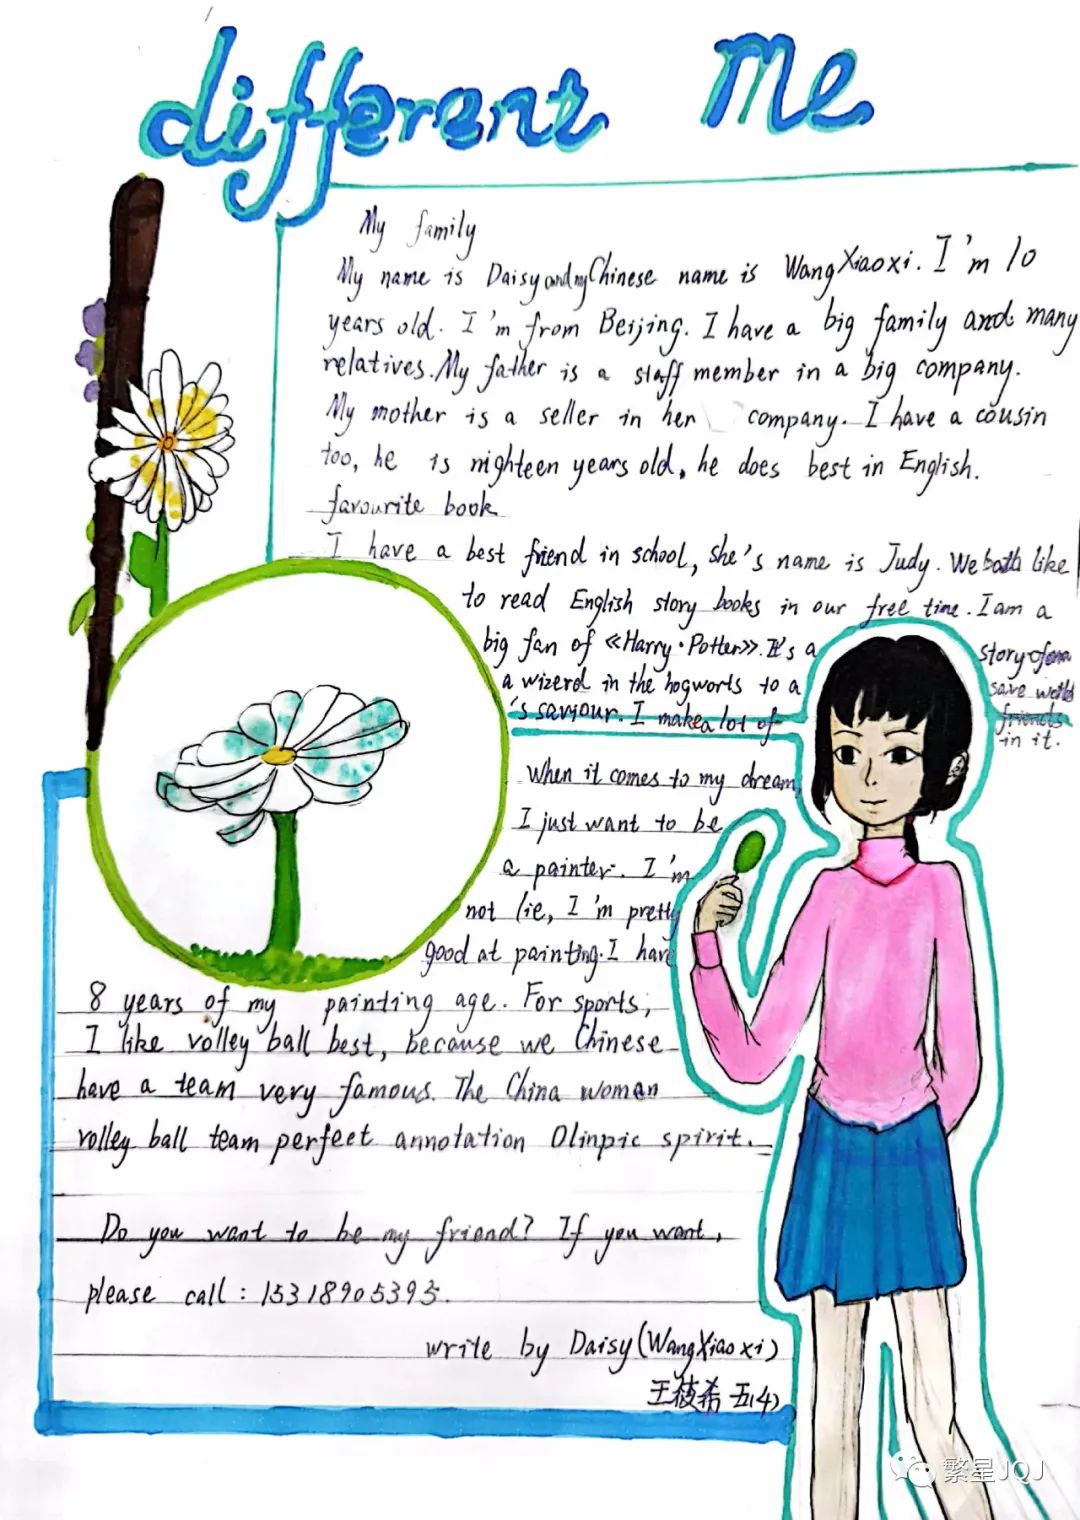 different Me
My family
My name is Daisy and my Chinese name is Wang Xiaoxi. I'm 10
years old. I'm from Beijing. I have a big family and many
relatives. My father is a staff member in a big company.
My mother is a seller in her company. I have a cousin
too, he is nighteen years old, he does best in English.
favourite book
I have a best friend in school, she's name is Judy. We both like
to read English story books in our free time. I am a
big fan of 《Harry·Potter》. It's a story of
a wizerd in the hogworts to a save world
's saviour. I make a lot of friends
in it.
When it comes to my dream,
I just want to be
a painter. I'm
not lie, I'm pretty
good at painting. I have
8 years of my painting age. For sports,
I like volley ball best, because we Chinese
have a team very famous. The China woman
volley ball team perfect annotation Olinpic spirit.
Do you want to be my friend? If you want,
please call: 15318905395.
write by Daisy (Wang Xiao xi)
王筱希 五(4)
繁星JQJ